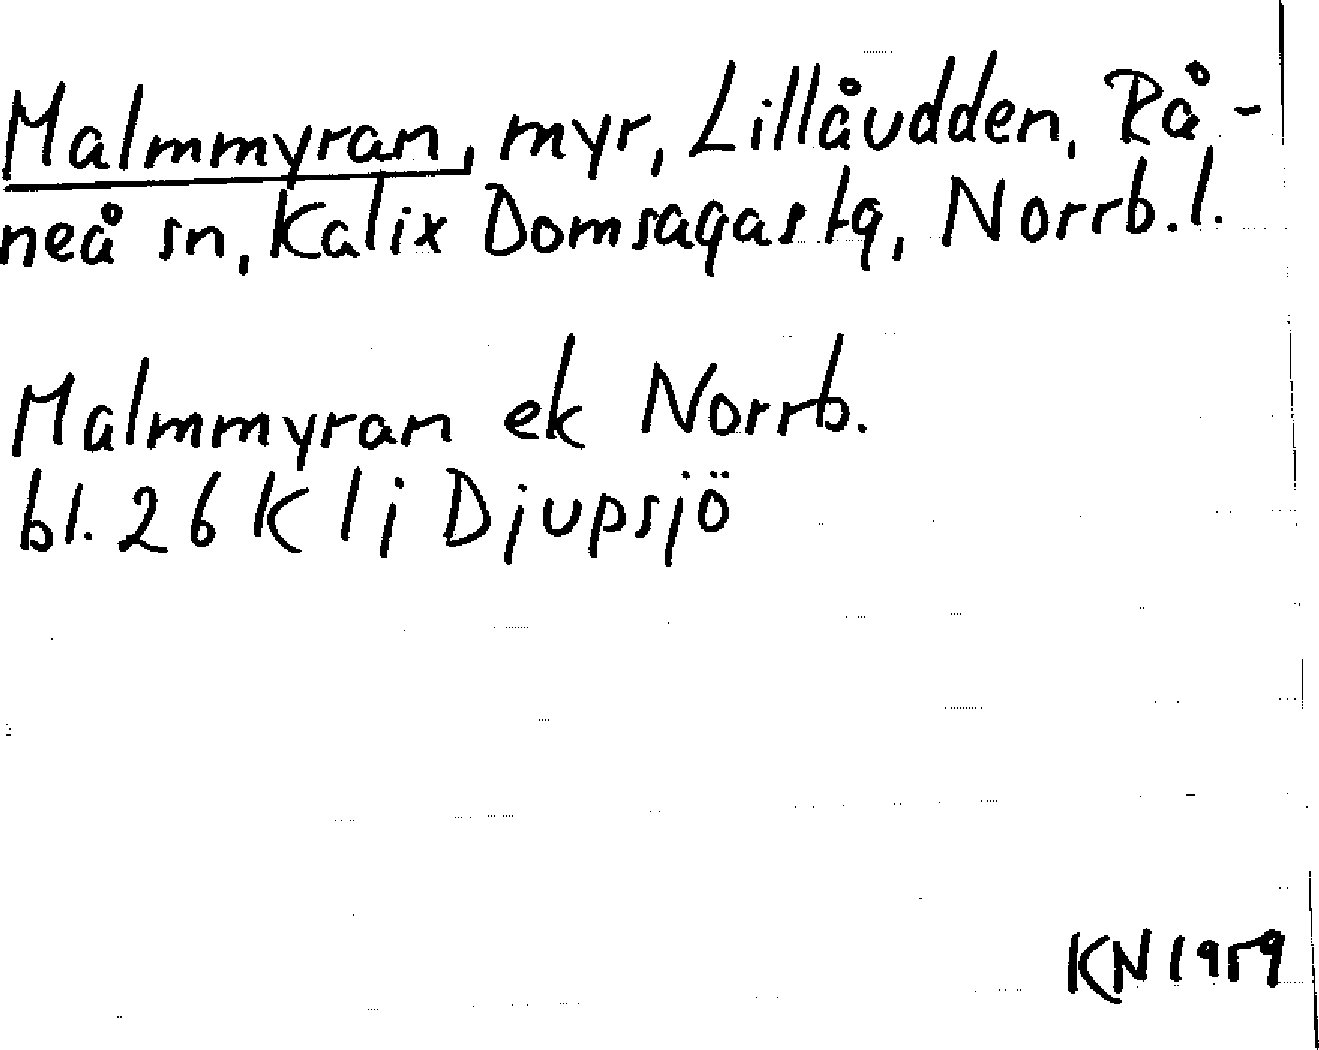 Malmmyran, myr, Lillåudden, Rå-
neå sn, Kalix Domsagas tg, Norrb. l.
Malmmyran ek Norrb.
bl. 26 K l j Djupsjö
KN 1959